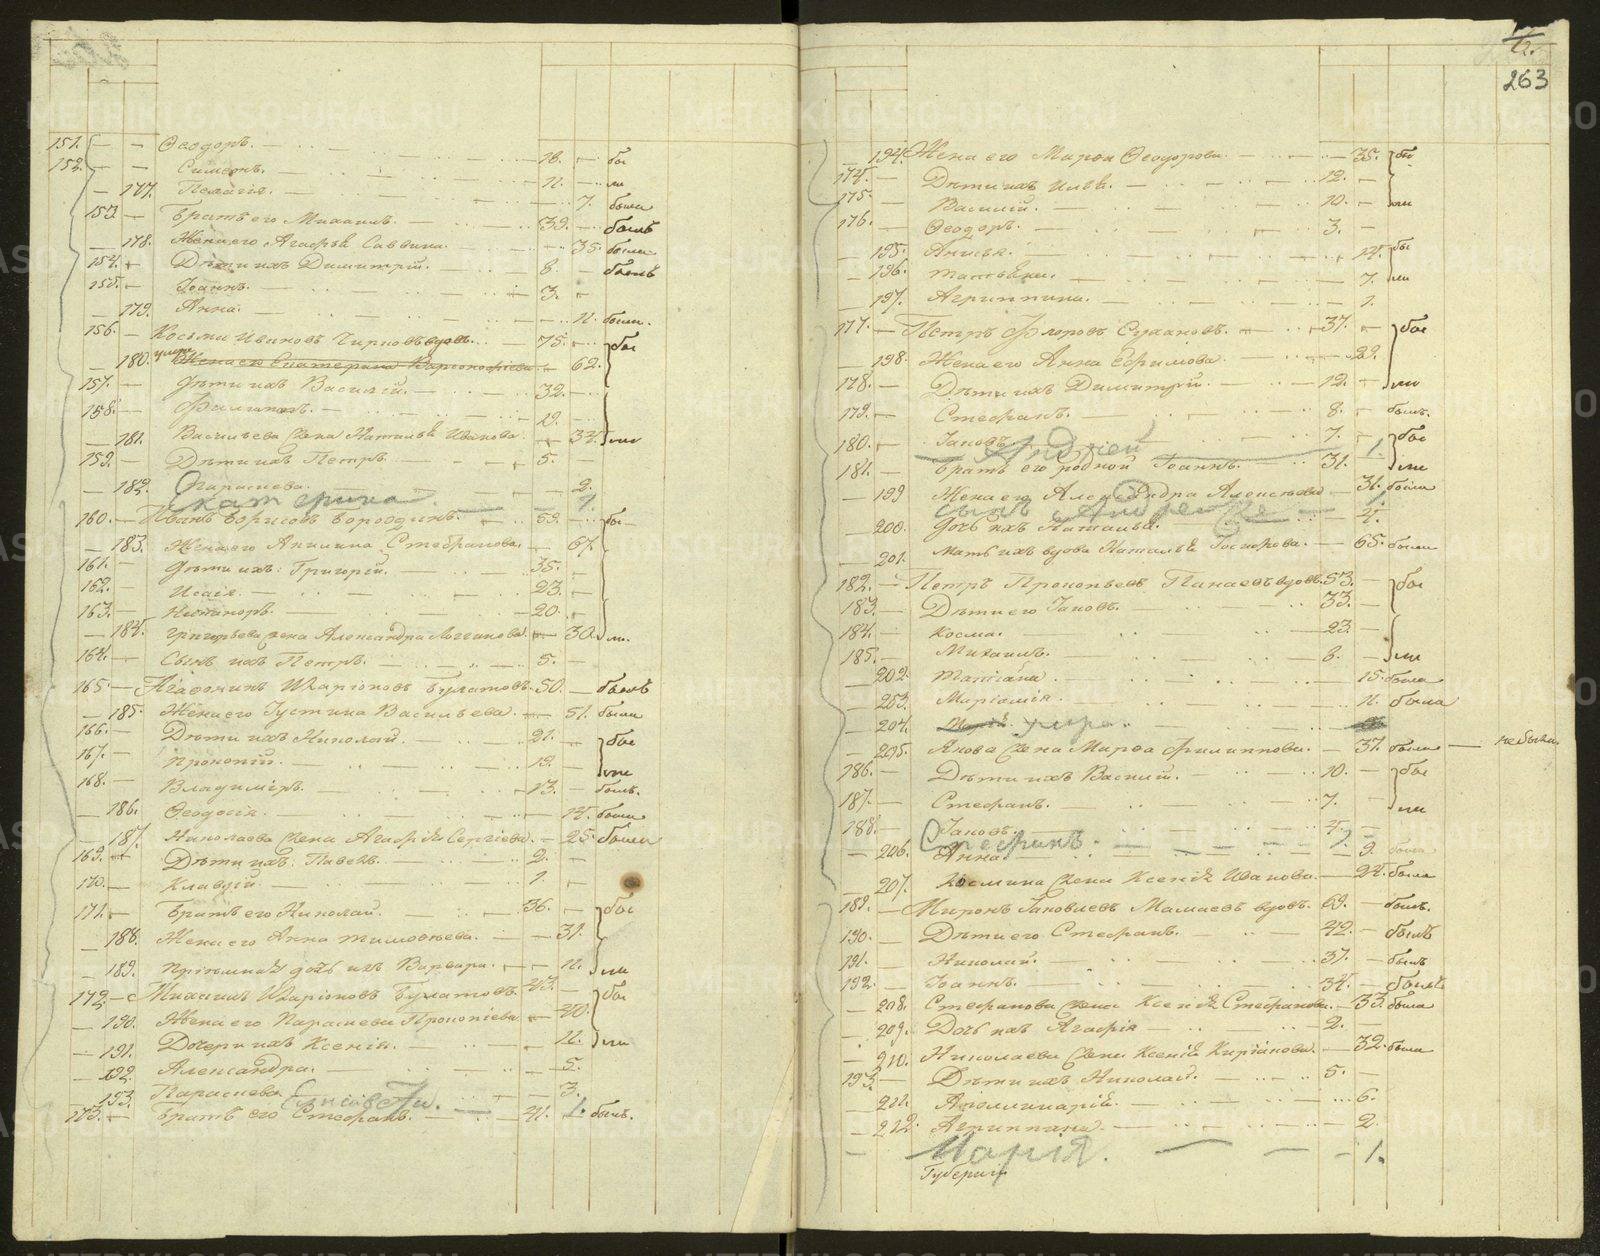 151. — — Ѳеодоръ. 18. — бы
152. — — Симеонъ. 11. — ли
— 177. Пелагія. — 7. была
153. — Братъ его Михаилъ. 39. — былъ
— 178. Жена его Агафья Саввина. — 35. была
154. — Дѣти ихъ Димитрій. 8. — былъ
155. — Іоаннъ. 3. —
— 179. Анна. — 11. была.
156. — Косьма Ивановъ вдовъ. 75. — бы
— 180. умре Жена его Екатерина — 62.
157. — Дѣти ихъ Василій. 32. —
158. — Филиппъ. 19.
— 181. Васильева жена Наталья Иванова. — 34. ли
159. — Дѣти ихъ Петръ. 5. —
— 182. Параскева. — 2.
Екатерина. — 1.
160. — Иванъ Борисовъ Бороздинъ. 59. — бы
— 183. Жена его Акилина Стефанова. — 67.
161. — Дѣти ихъ: Григорій. 35. —
162. — Исаія. 23. —
163. — Никаноръ. 20. —
— 184. Григорьева жена Александра Логгинова. — 30. ли.
164. — Сынъ ихъ Петръ. 5. —
165. — Агафоникъ Иларіоновъ Булатовъ. 50. — былъ
— 185. Жена его Іустина Васильева. — 51. была
166. — Дѣти ихъ Николай. 21. — бы
167. — Прокопій. 19. — ли
168. — Владиміръ. 13. — былъ.
— 186. Ѳеодосія. — 14. была
— 187. Николаева жена Агафія Сергіева. — 25. была
169. — Дѣти ихъ: Павелъ. 2. —
170. — Клавдій. 1. —
171. — Братъ его Николай. 36. — бы
— 188. Жена его Анна Тимоѳеева. — 31.
— 189. Пріемная дочь ихъ Варвара. — 11. ли
172. — Михаилъ Иларіоновъ Булатовъ. 43. — бы
— 190. Жена его Параскева Прокопіева — 40.
— 191. Дочери ихъ Ксенія. — 11. ли
— 192. Александра. — 5.
— 193. Параскева. — 3.
Елисавета. — 1.
173. — Братъ его Стефанъ. 41. былъ.
263
— 194. Жена его Марѳа Ѳеодорова. — 35. бы
174. — Дѣти ихъ Илья. 12. —
175. — Василій. 10. — ли
176. — Ѳеодоръ. 3. —
— 195. Анисья. — 14. бы
— 196. Татьяна. — 7. ли
— 197. Агриппина. — 1.
177. — Петръ Флоровъ Сухановъ. 37. — бы
— 198. Жена его Анна Ефимова. — 39.
178. — Дѣти ихъ Димитрій. 12. — ли
179. — Стефанъ. 8. — былъ.
180. — Іаковъ. 7. — бы
Андрей 1.
181. — Братъ его родной Іоаннъ. 31. ли
— 199 Жена его Александра Алексѣева — 31. была
сынъ Андрей 1.
— 200. Дочь ихъ Наталья. — 4.
— 201. Мать ихъ вдова Наталья — 65. была
182. — Петръ Прокопьевъ Панаевъ вдовъ. 53. — бы
183. — Дѣти его Іаковъ. 33. —
184. — Косма. 23. —
185. — Михаилъ. 6. — ли
— 202. Татіана. — 15. была
— 203. Маріамія. — 11. была
— 204. умре.
— 205. Якова жена Марѳа Филиппова. — 37. была — не была
186. — Дѣти ихъ Василій. 10. — бы
187. — Стефанъ. 7. — ли
188. — Іаковъ. 4. —
Стефанъ. 1.
— 206. Анна. — 9. была
— 207. Космина жена Ксенія Иванова. — 24. была
189. — Миронъ Іаковлевъ Мамаевъ вдовъ. 69. — былъ.
190. — Дѣти его Стефанъ. 42. — былъ
191. — Николай. 37. — былъ
192. — Іоаннъ. 34. — былъ
— 208. Стефанова жена Ксенія Стефанова. — 33. была
— 209. Дочь ихъ Агафія — 2.
— 210. Николаева жена Ксенія Киріакова. — 32. была
193. — Дѣти ихъ Николай. 5. —
— 211. Аполлинарія. — 6.
— 212. Агриппина. — 2.
— Марія. — 1.
METRIKI.GASO-URAL.RU